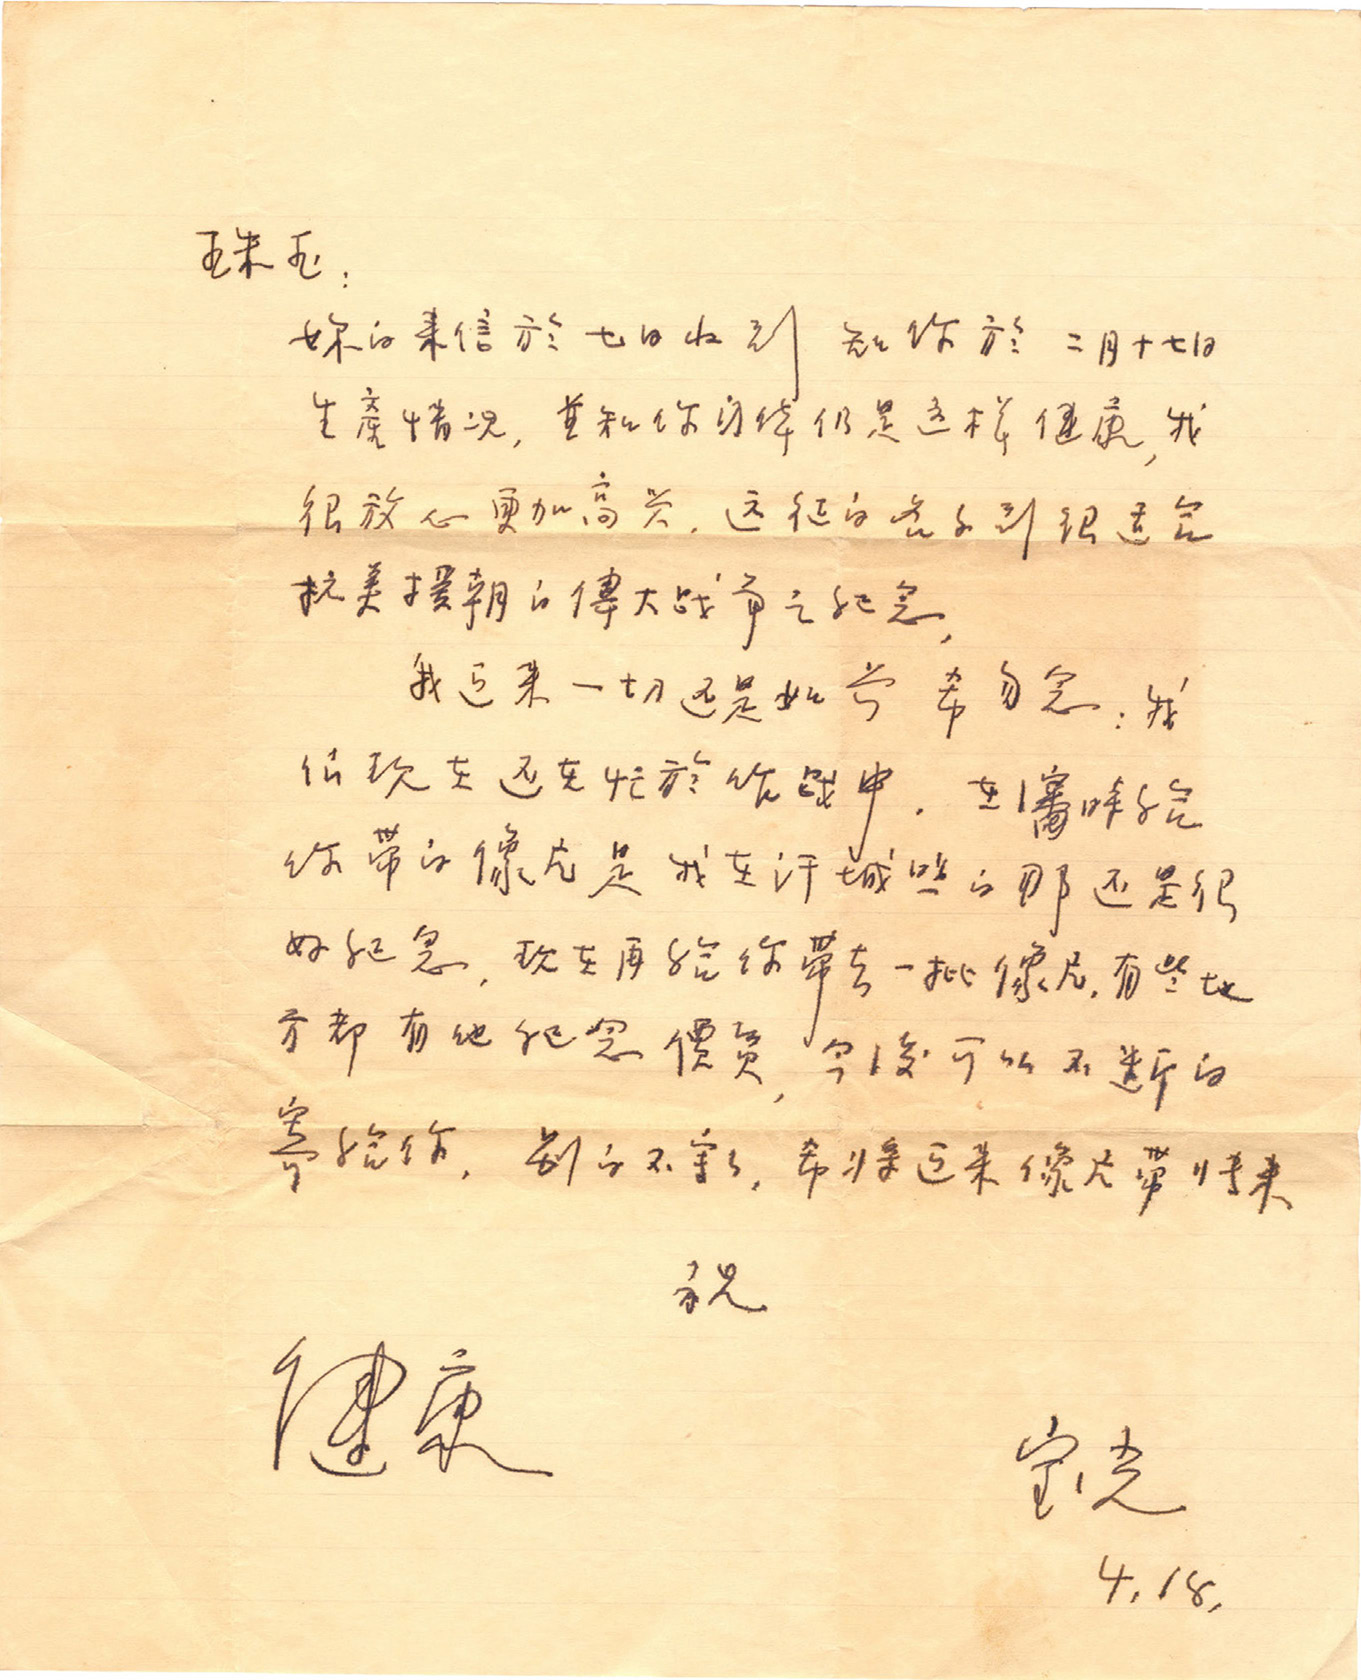 珠玉：
妳的来信於七日收到 知你於 二月十七日
生產情况，並知你身体仍是这样健康，我
很放心更加高兴．远征的名子到很适合
抗美援朝的偉大战争之纪念，
我近来一切还是如常 希勿念：我
们现在还在忙於作战中．在瀋阳给
你带的像片是我在汗城照的那还是很
好纪念，现在再给你带去一批像片，有些地
方都有他纪念價質，今後可以不断的
寄给你，别的不寫了，希将近来像片带时来
祝
健康
宝光
4.18，